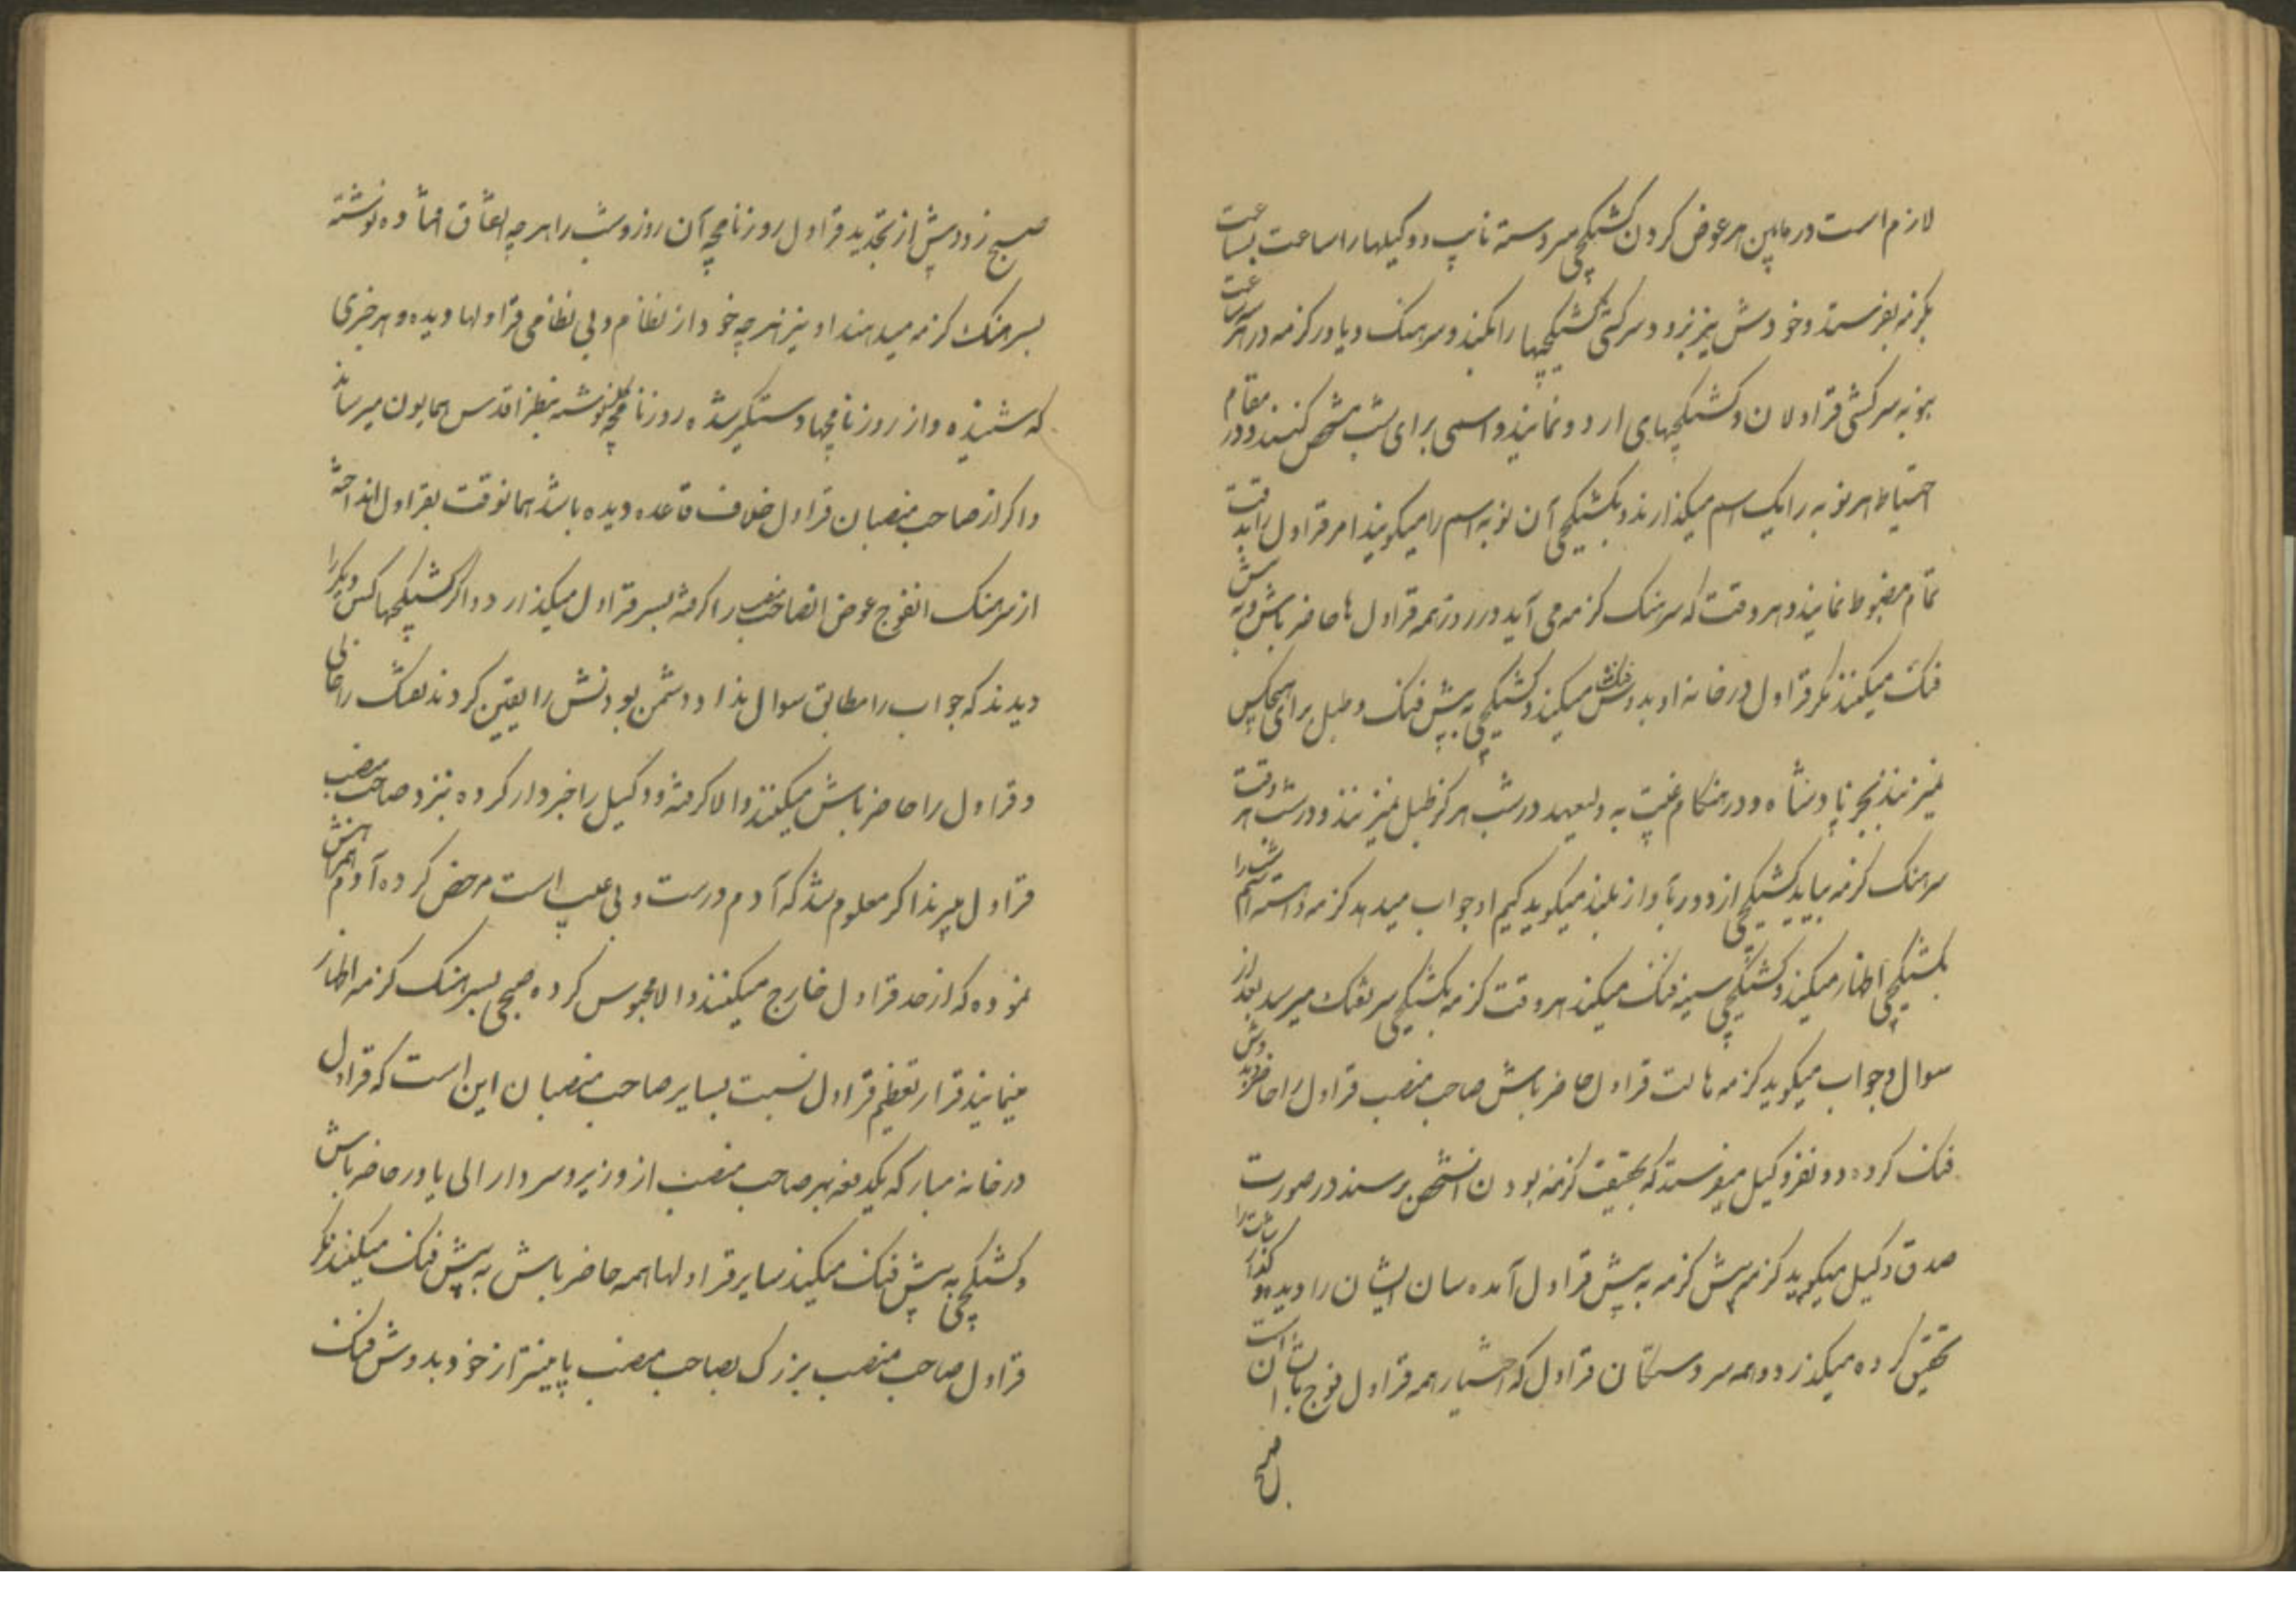 لازم است در مابین هر عوض کردن کشیکچی سردسته نایب و وکیلها را ساعت بساعت
بگزمه بفرستد و خودش نیز برود و سرکشی کشیکچیها را بکند و سرهنک و یاور گزمه در هر سه ساعت
بنوبه سرکشی قراولان و کشیکچیهای اردو نمایند و اسمی برای شب مشخص کنند و در مقام
احتیاط هر نوبه را یک اسم میگذارند و بکشیکچی آن نوبه اسم را میگویند امر قراول را بدقت
تمام مضبوط نمایند و هر وقت که سرهنک گزمه می آید در روز همه قراول ها حاضر باش و به پیش
فنک میکنند مگر قراول درخانه او بدوش فنک میکند و کشیکچی به پیش فنک و طبل برای هیچکس
نمیزنند بجز پادشاه و در هنگام غیبت به ولیعهد در شب هرگز طبل نمیزنند و در شب هر وقت
سرهنک گزمه بیاید کشیکچی از دور بآواز بلند میگوید کیم او جواب میدهد گزمه و آهسته اسم شب را
بکشیکچی اظهار میکند و کشیکچی سینه فنک میکند هر وقت گزمه بکشیکچی سر تفنک میرسد بعد از
سوال و جواب میگوید گزمه هالت قراول حاضر باش صاحب منصب قراول را حاضر و بدوش
فنک کرده دو نفر وکیل میفرستد که بحقیقت گزمه بودن آنشخص برسند در صورت
صدق وکیل میگوید گزمه پیش گزمه به پیش قراول آمده سان ایشان را دیده و گذارشات را
تحقیق کرده میگذرد و همه سردستکان قراول که اختیار همه قراول فوج با آن است
صبح
صبح زود پیش از تجدید قراول روزنامچه آن روز و شب را هر چه اتفاق افتاده نوشته
بسرهنک گزمه میدهند او نیز هر چه خود از نظام و بی نظامی قراولها دیده و هر خبری
که شنیده و از روزنامچها دستگیر شده روزنامچه نوشته بنظر اقدس همایون میرساند
و اگر از صاحب منصبان قراول خلاف قاعده دیده باشد همانوقت بقراول انداخته
از سرهنک انفوج عوض انصاحب منصب را گرفته بسر قراول میگذارد و اگر کشیکچیها کس دیگر را
دیدند که جواب را مطابق سوال نداد و دشمن بودنش را یقین کردند تفنک را خالی
و قراول را حاضر باش میکنند والا گرفته و وکیل را خبردار کرده بنزد صاحب منصب
قراول میبرند اگر معلوم شد که آدم درست و بی عیب است مرخص کرده آدم همراهش
نموده که از حد قراول خارج میکنند والا محبوس کرده صبحی بسرهنک گزمه اظهار
مینمایند قرار تعظیم قراول نسبت بسایر صاحب منصبان این است که قراول
درخانه مبارکه یکدفعه بهر صاحب منصب از وزیر و سردار الی یاور حاضر باش
و کشیکچی به پیش فنک میکند سایر قراولها همه حاضر باش به پیش فنک میکنند مگر
قراول صاحب منصب بزرک بصاحب منصب پایینتر از خود بدوش فنک